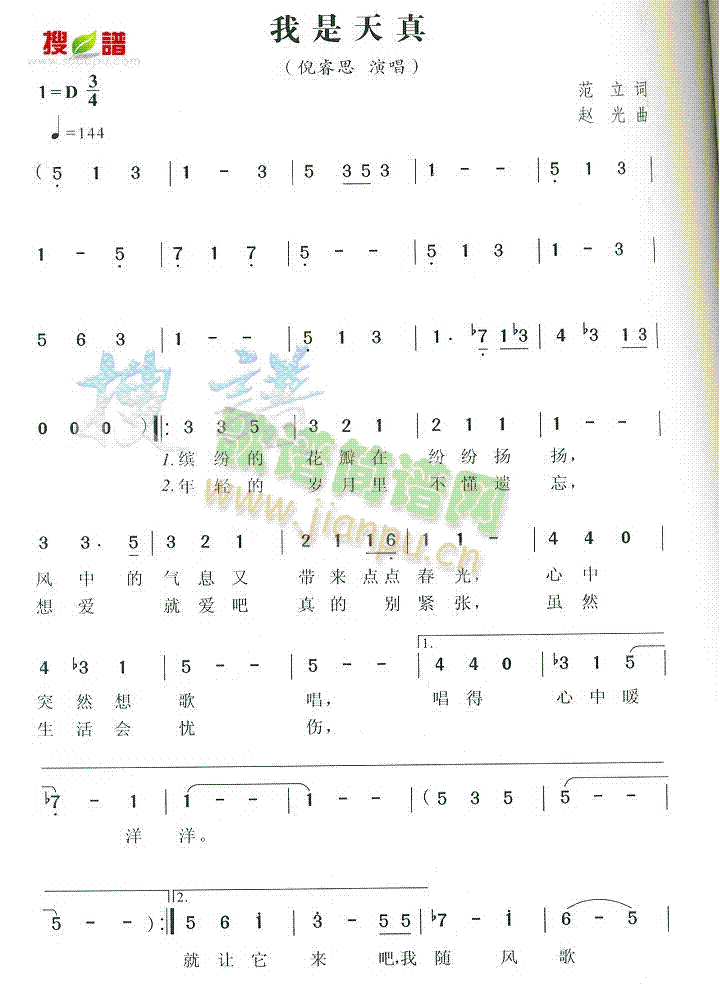 我是天真
搜谱
www.souopu.com
（倪睿思 演唱）
1=D 3/4
范 立 词
♩=144
赵 光 曲
( 5 1 3 | 1 - 3 | 5 3 5 3 | 1 - - | 5 1 3 |
1 - 5 | 7 1 7 | 5 - - | 5 1 3 | 1 - 3 |
5 6 3 | 1 - - | 5 1 3 | 1 · ♭7 1 ♭3 | 4 ♭3 1 3 |
0 0 0 ) ‖: 3 3 5 | 3 2 1 | 2 1 1 | 1 - - |
1.缤 纷 的 花 瓣 在 纷 纷 扬 扬，
2.年 轻 的 岁 月 里 不 懂 遗 忘，
3 3 · 5 | 3 2 1 | 2 1 1 6 | 1 - - | 4 4 0 |
风 中 的 气 息 又 带 来 点 点 春 光， 心 中
想 爱 就 爱 吧 真 的 别 紧 张， 虽 然
1.
4 ♭3 1 | 5 - - | 5 - - | 4 4 0 | ♭3 1 5 |
突 然 想 歌 唱， 唱 得 心 中 暖
生 活 会 忧 伤，
♭7 - 1 | 1 - - | 1 - - | ( 5 3 5 | 5 - - |
洋 洋。
2.
5 - - ) :‖ 5 6 1 | 3 - 5 5 | ♭7 - 1 | 6 - 5 |
就 让 它 来 吧，我 随 风 歌
搜 谱
歌谱简谱网
www.jianpu.cn